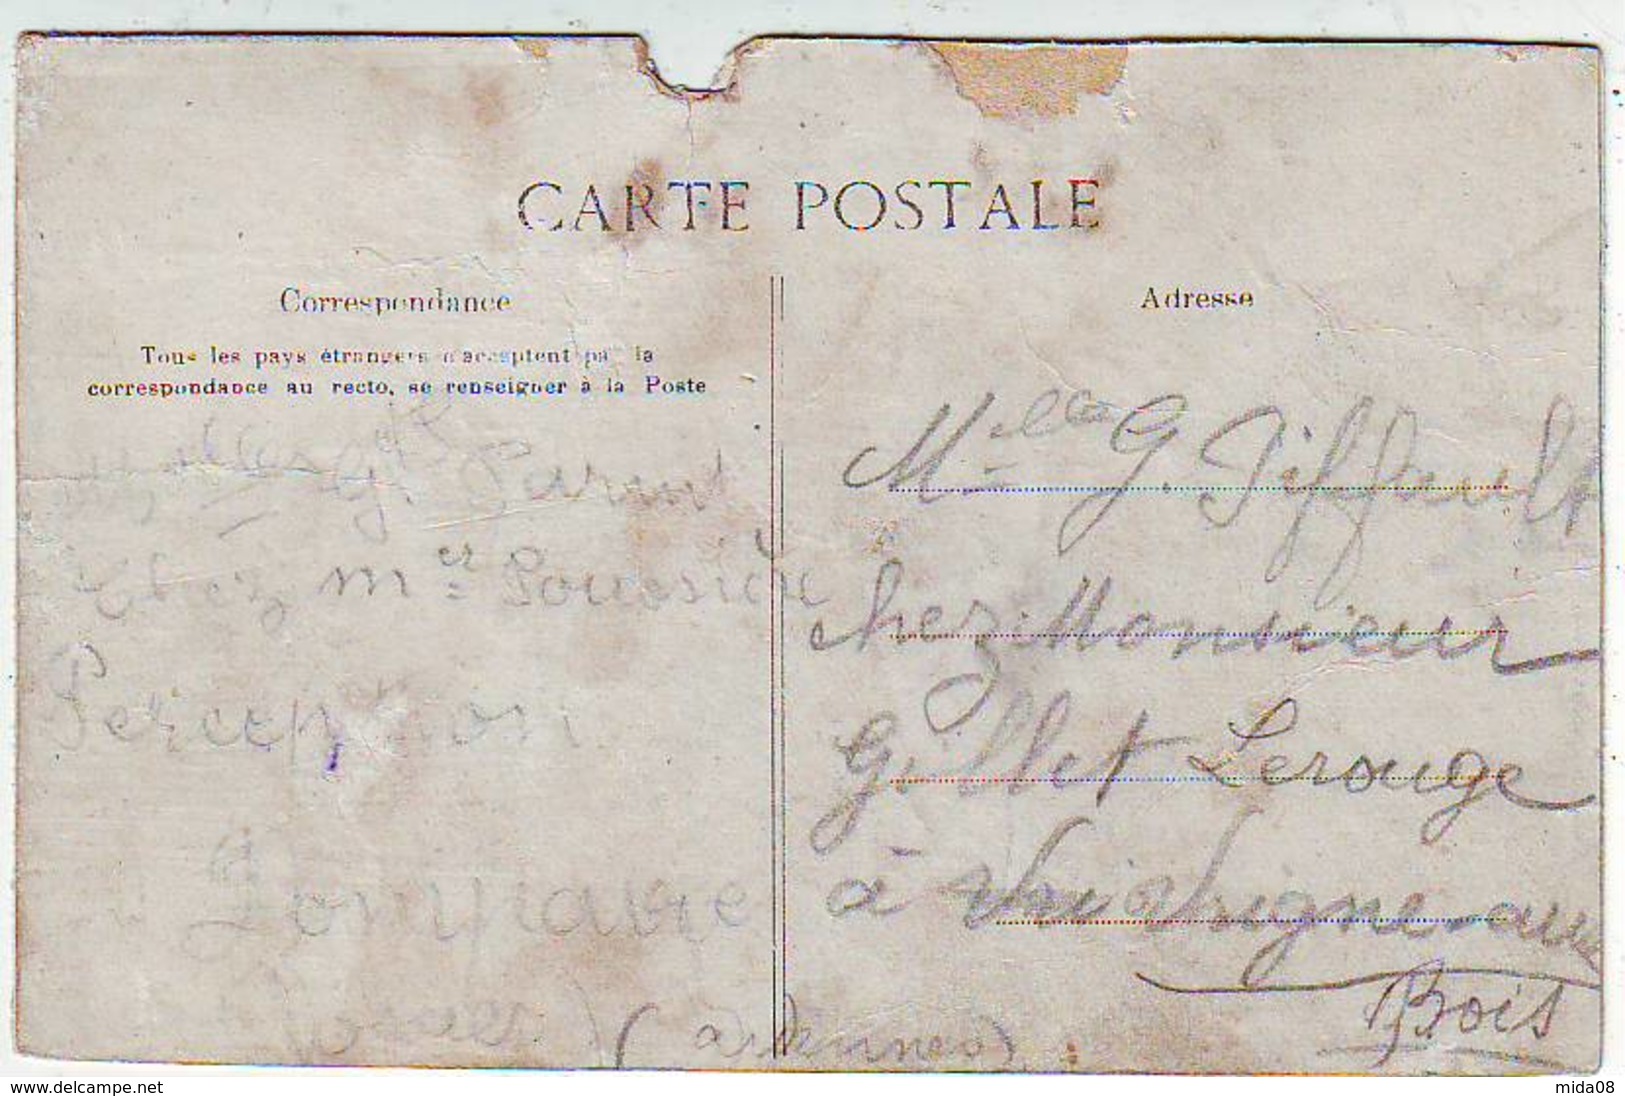 CARTE POSTALE
Correspondance
Tous les pays étrangers n'acceptent pas la
correspondance au recto, se renseigner à la Poste
G. Parent
Chez m
Perception
Adresse
Melle G. Piffault
chez Monsieur
Gillet Lerouge
à Vrignes aux
Bois
(Ardennes)
www.delcampe.net
mida08